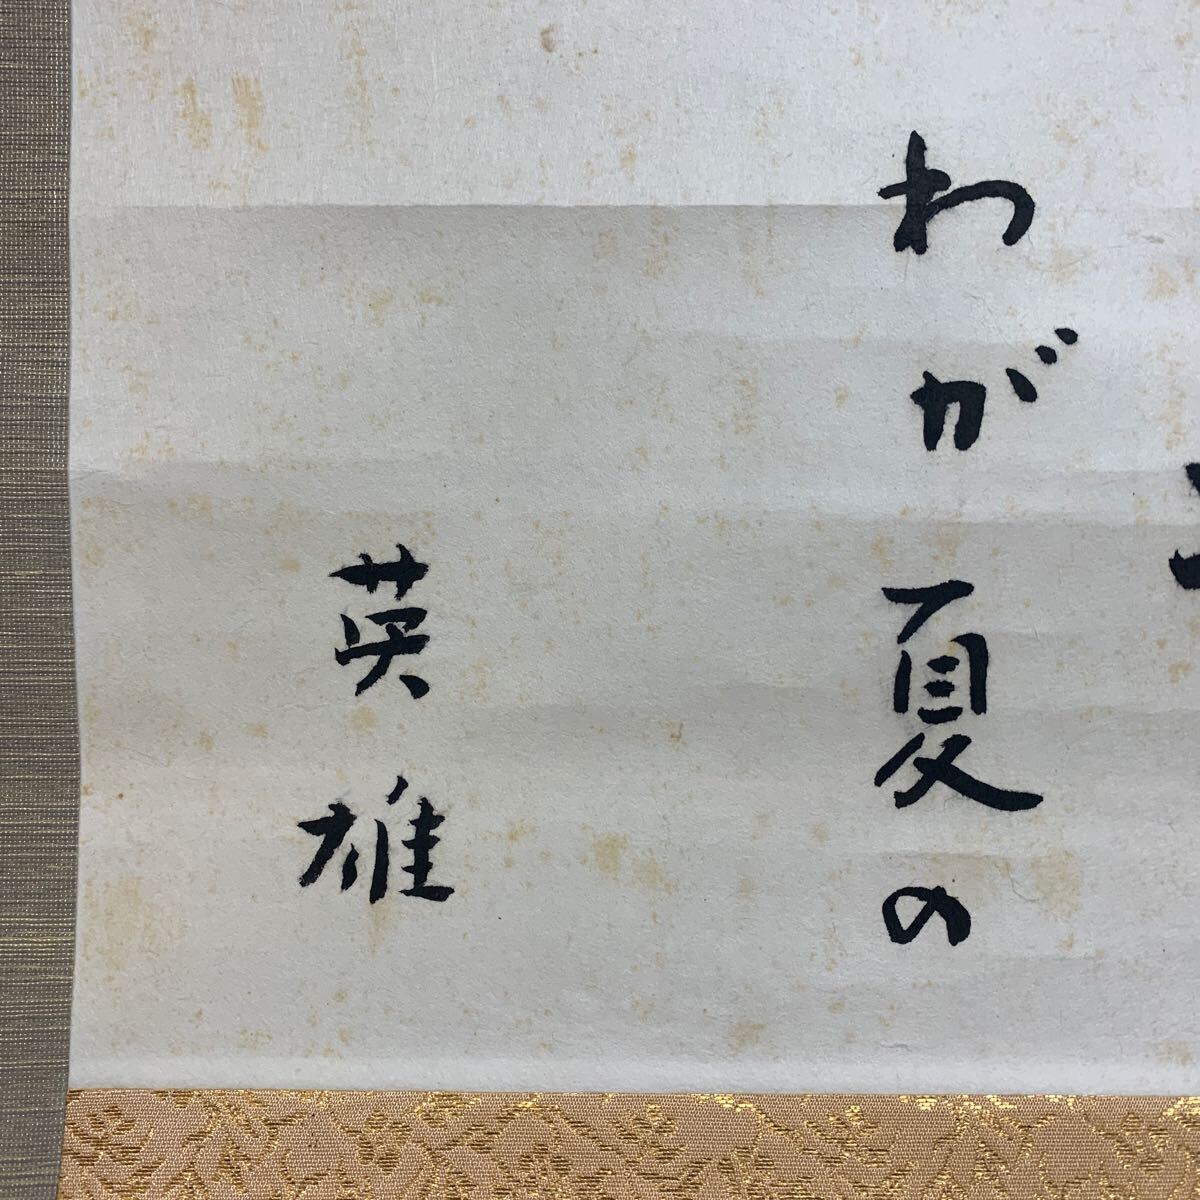 わが夏の
英雄